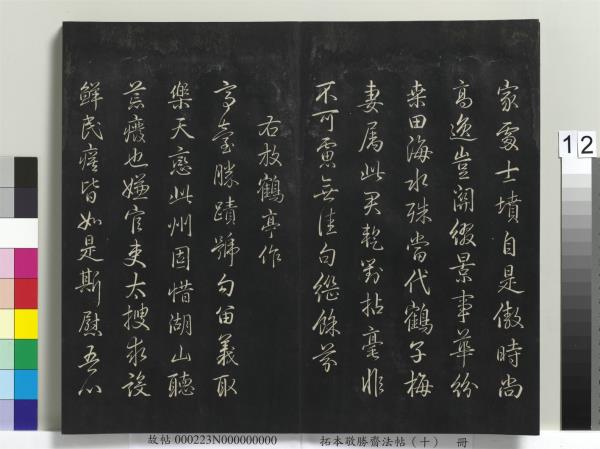 家處士墳自是傲時尚
高逸豈關綴景事華紛
桑田海水殊當代鶴子梅
妻屬此君對拈毫非
不可慮無佳句繼餘芬
右放鶴亭作
亭臺勝蹟號勾留義取
樂天戀此州因惜湖山聽
荒癈也嫌官吏太搜求設
鮮民瘼皆如是斯慰吾心
12
故帖 000223N000000000
拓本敬勝齋法帖（十） 冊